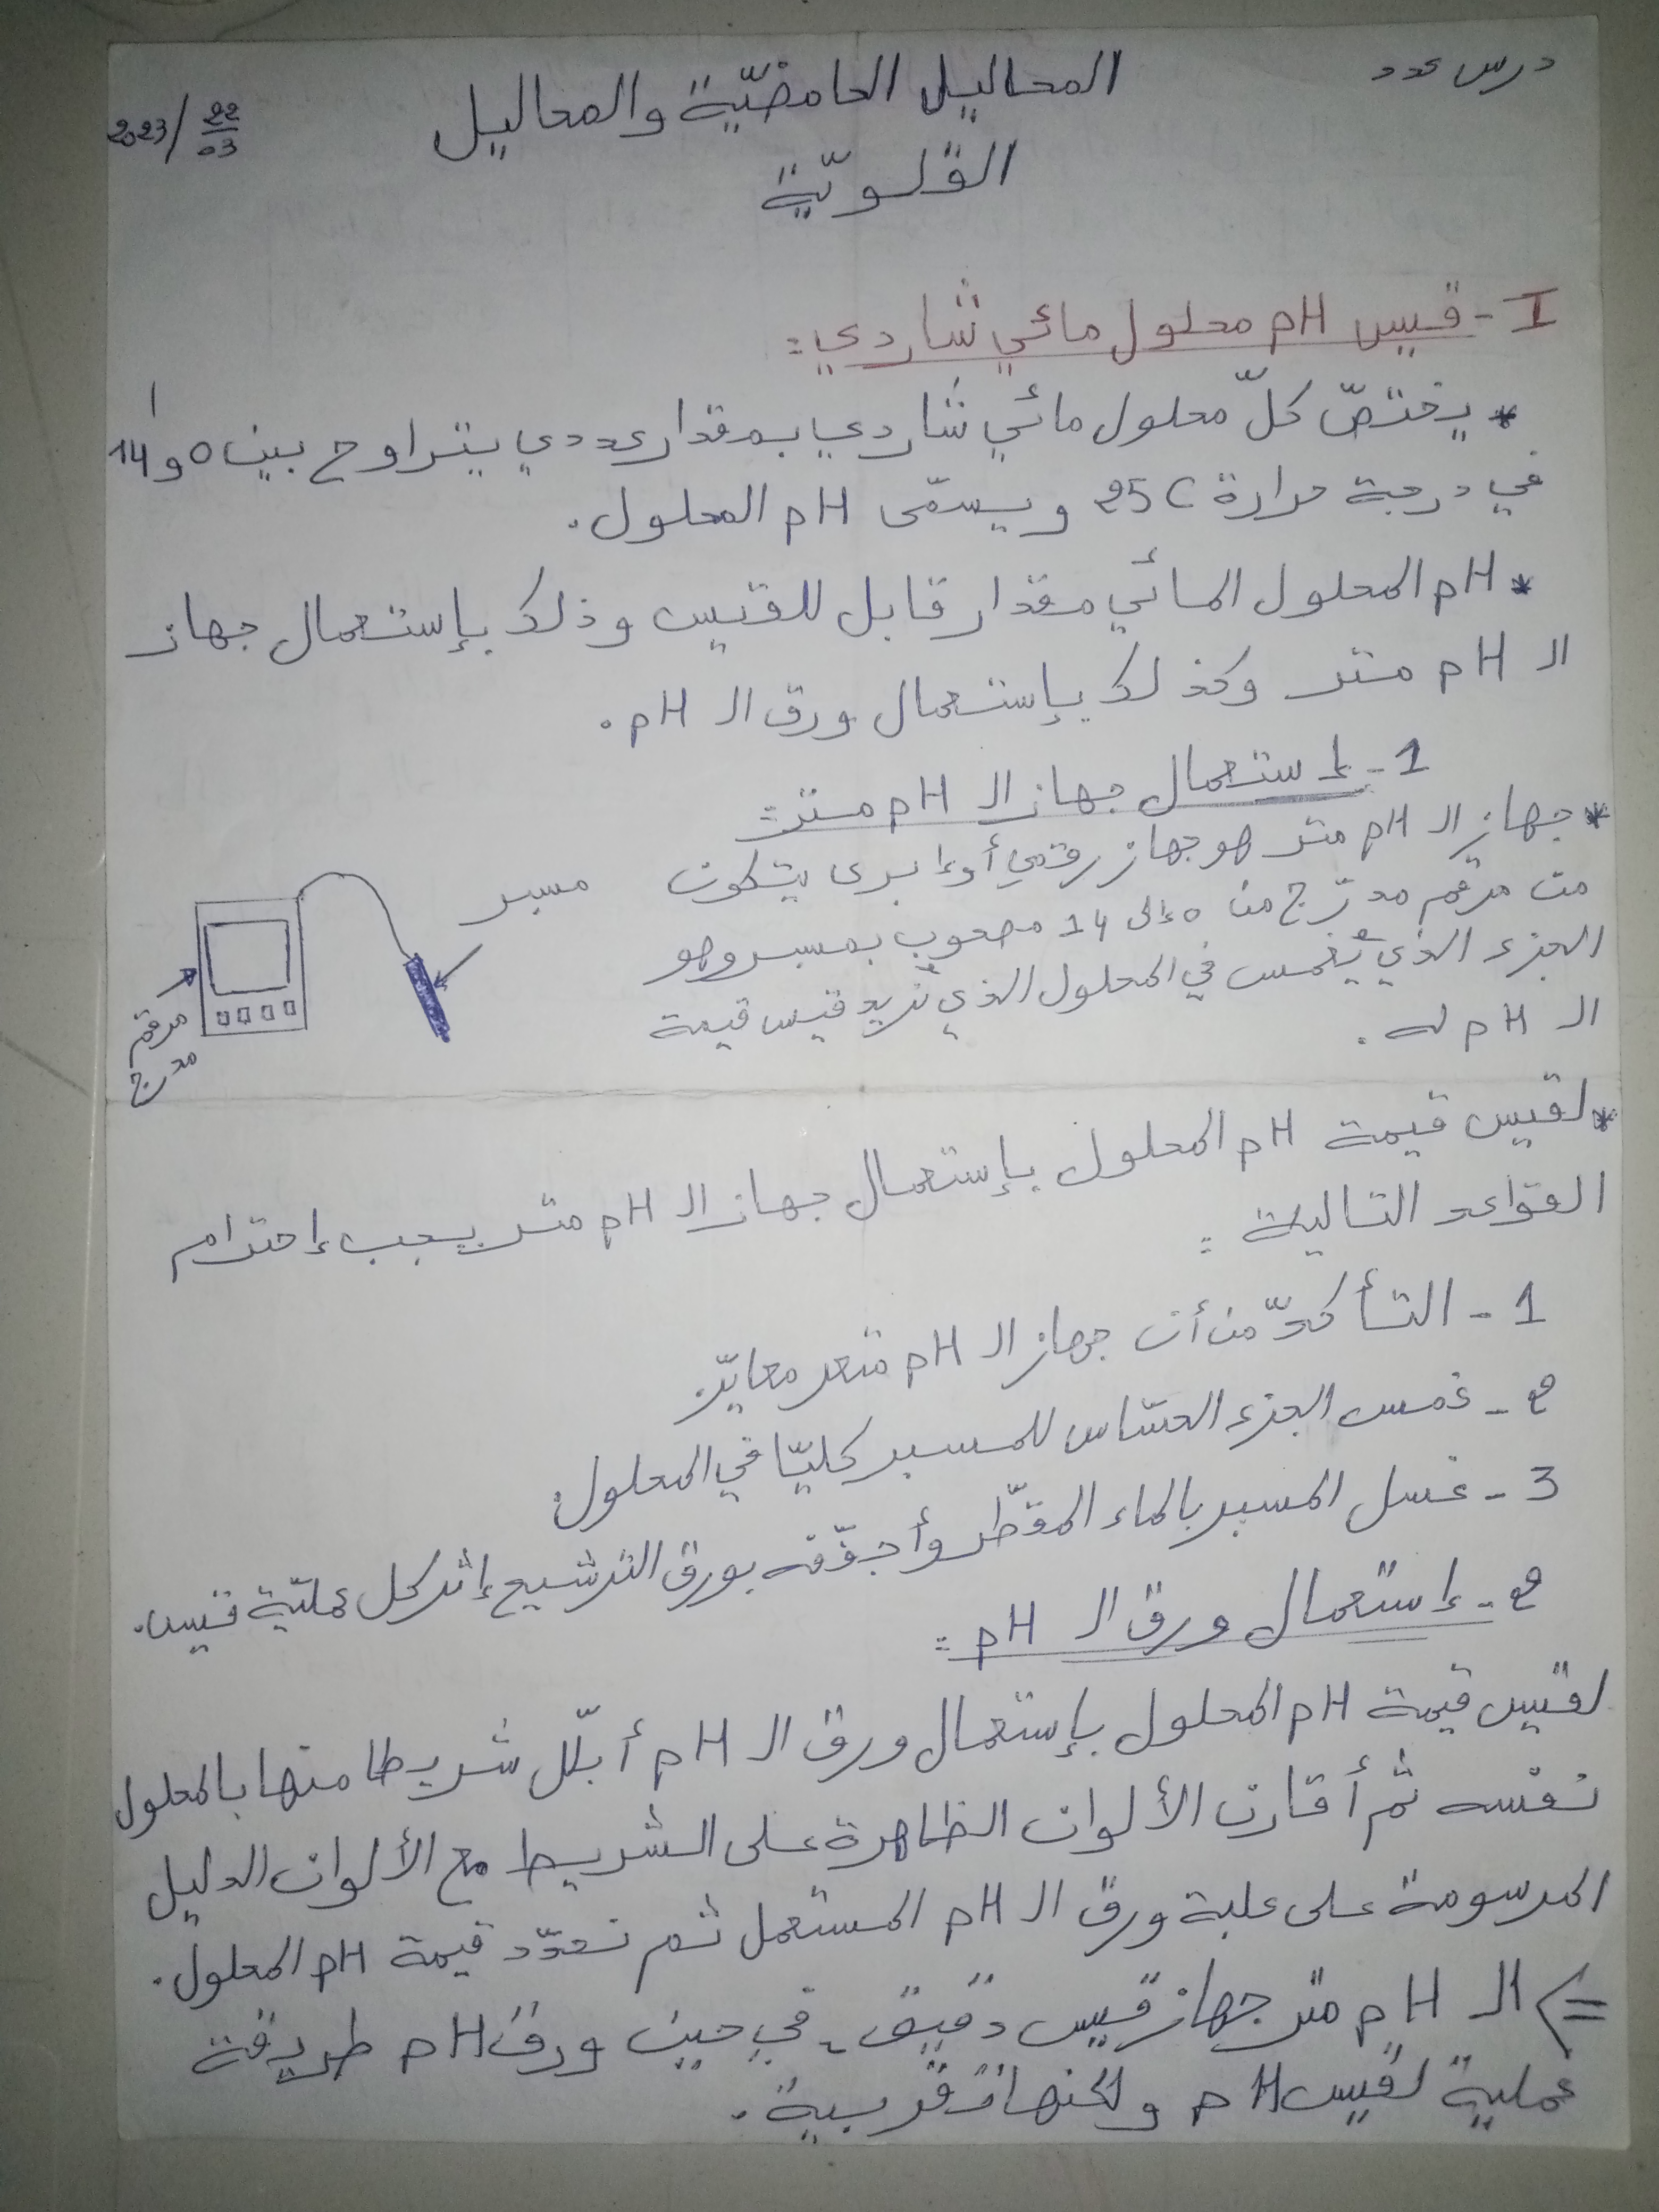 درس عدد
المحاليل الحامضيّة والمحاليل
القلويّة
22/03/2023
I - قيس pH محلول مائي شاردي:
* يختصّ كلّ محلول مائي شاردي بمقدار عددي يتراوح بين 0 و 14
في درجة حرارة 25C ويسمّى pH المحلول.
* pH المحلول المائي مقدار قابل للقيس وذلك بإستعمال جهاز
الـ pH متر وكذلك بإستعمال ورق الـ pH.
1 - إستعمال جهاز الـ pH متر:
* جهاز الـ pH متر هو جهاز رقمي أو إبرى يتكون
من مرقم مدرّج من 0 إلى 14 مصحوب بمسبر وهو
الجزء الذي يُغمس في المحلول الذي نريد قيس قيمة
الـ pH له.
مسبر
مرقم
مدرج
* لقيس قيمة pH المحلول بإستعمال جهاز الـ pH متر يجب إحترام
القواعد التالية:
1 - التأكدّ من أن جهاز الـ pH متعر معايّر.
2 - غمس الجزء الحسّاس للمسبر كليّا في المحلول.
3 - غسل المسبر بالماء المقطّر وأجفّفه بورق الترشيح إثر كل عمليّة قيس.
2 - إستعمال ورق الـ pH:
لقيس قيمة pH المحلول بإستعمال ورق الـ pH أبلّل شريطا منها بالمحلول
نفسه ثم أقارن الألوان الظاهرة على الشريط مع الألوان الدليل
المرسومة على علبة ورق الـ pH المستعمل ثم نحدّد قيمة pH المحلول.
=> الـ pH متر جهاز قيس دقيق، في حين ورق pH طريقة
عملية لقيس pH ولكنها تقريبية.